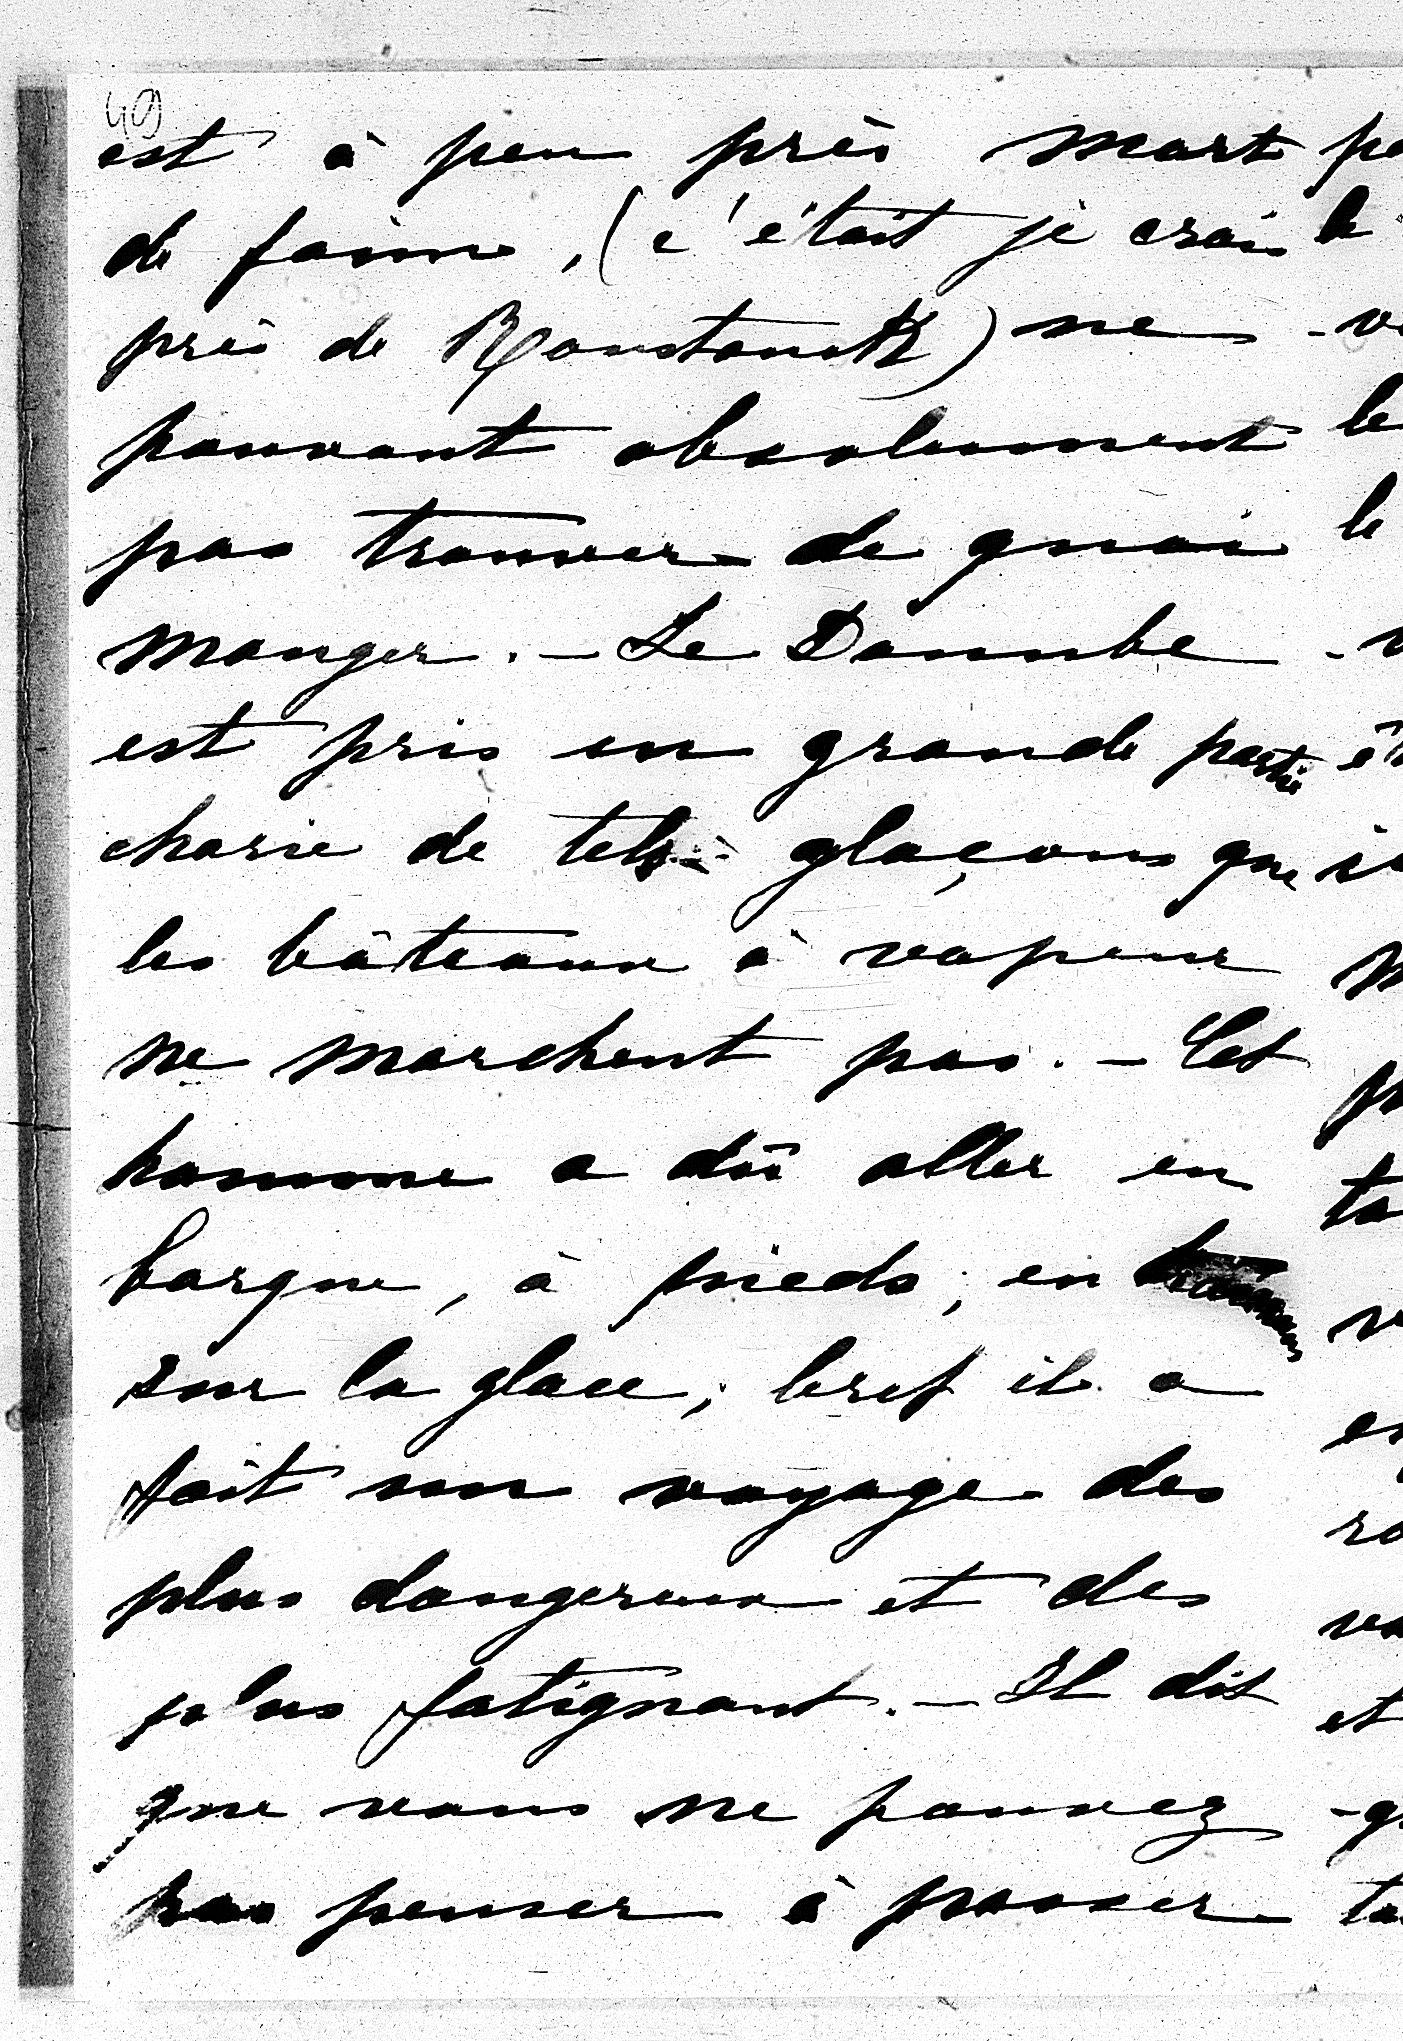 49
est à peu près mort
de faim, (c'était je crois
près de Roustouck) ne
pouvant absolument
pas trouver de quoi
manger. – Le Danube
est pris en grande partie
charie de tels glaçons que
les bâteaux à vapeur
ne marchent pas. – Cet
homme a dû aller en
barque, à pieds, en traineaux
sur la glace; bref il a
fait un voyage des
plus dangereux et des
plus fatignant. – Il dit
que vous ne pouvez
pas penser à passer